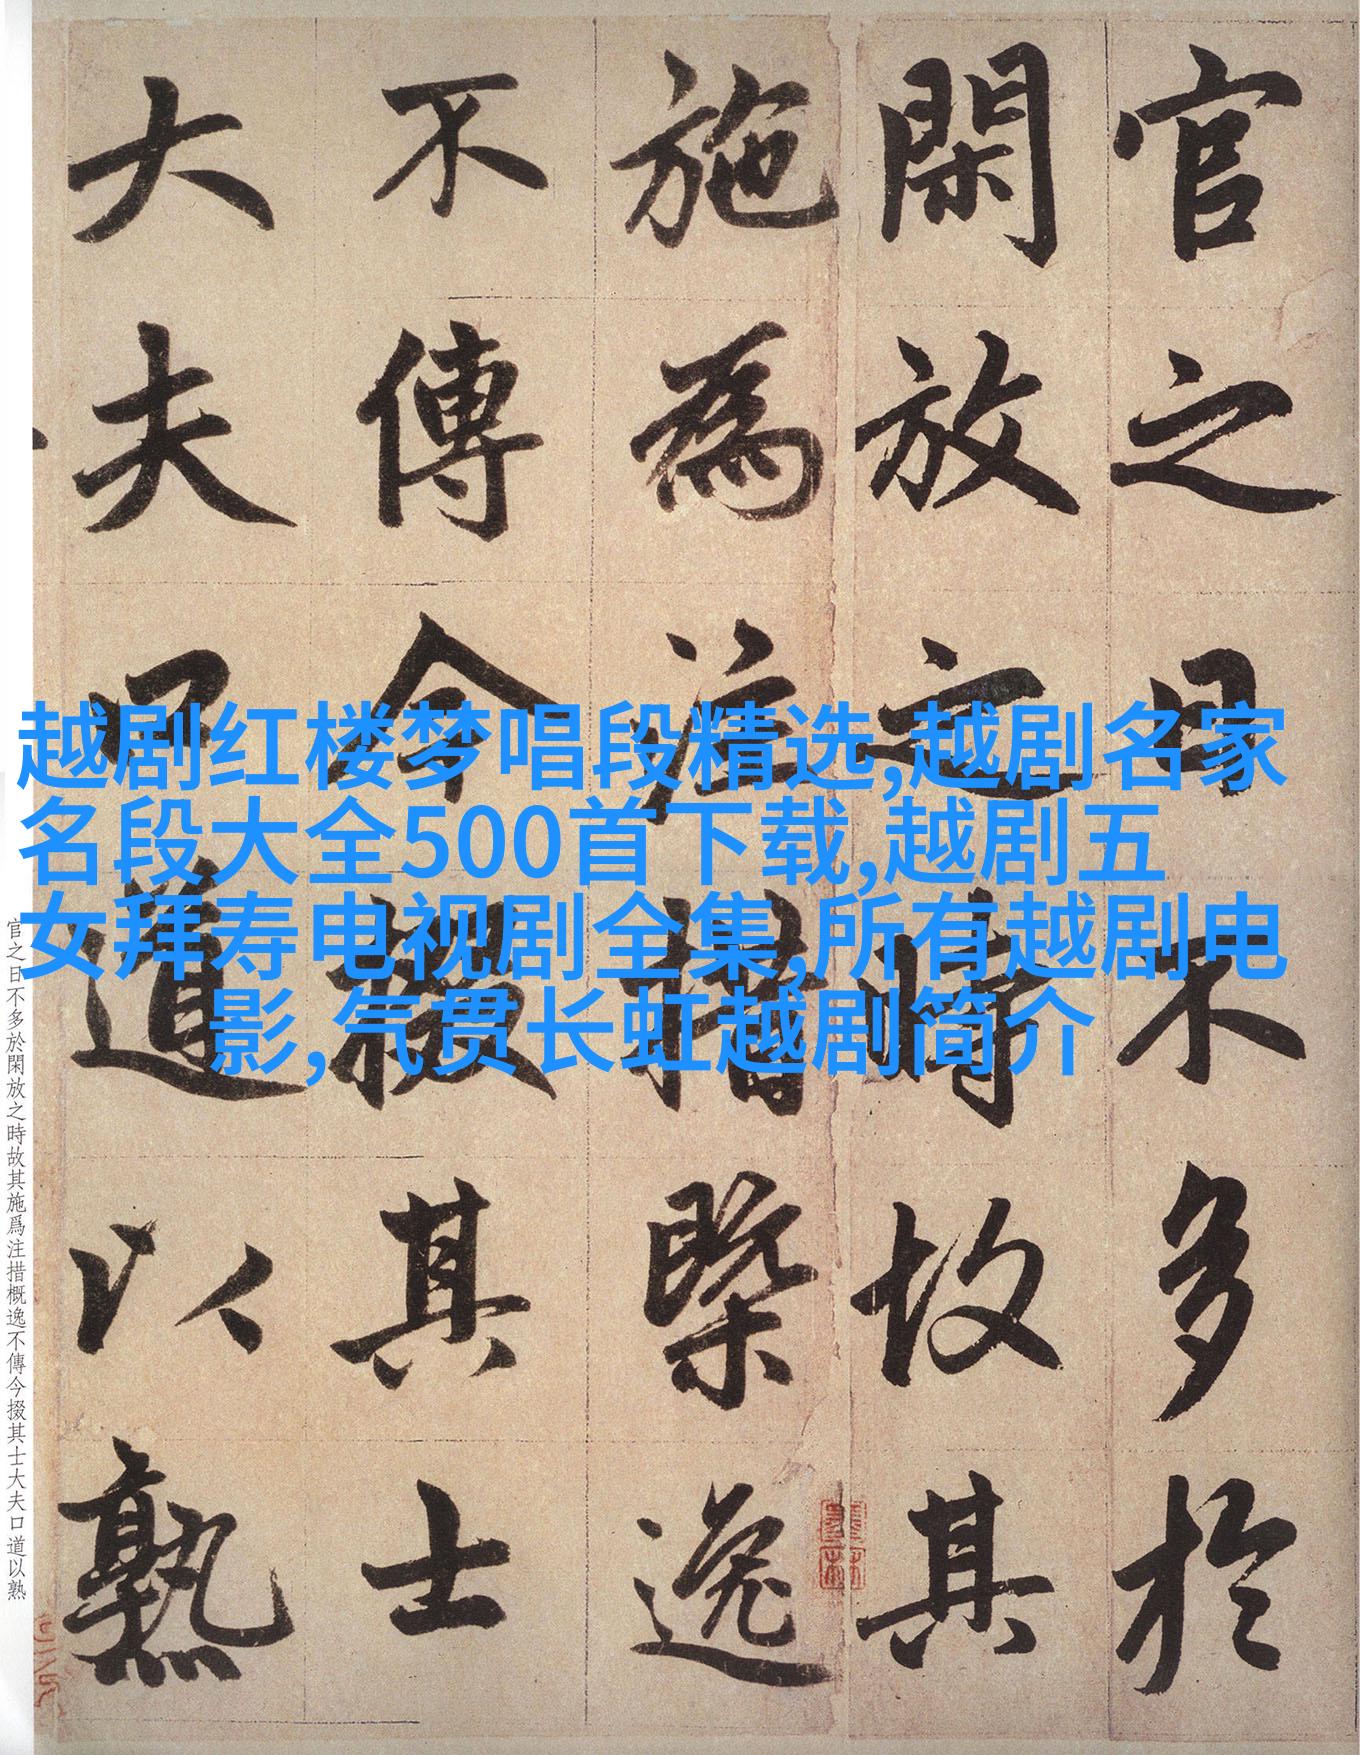 官之日不多於
閑放之時故其
施為注措槩逸
不傳今掇其士
大夫口道以熟
越剧红楼梦唱段精选,越剧名家
名段大全500首下载,越剧五
女拜寿电视剧全集,所有越剧电
影,气贯长虹越剧简介
官之日不多於閑放之時故其施爲注措概逸不傳今掇其士大夫口道以熟